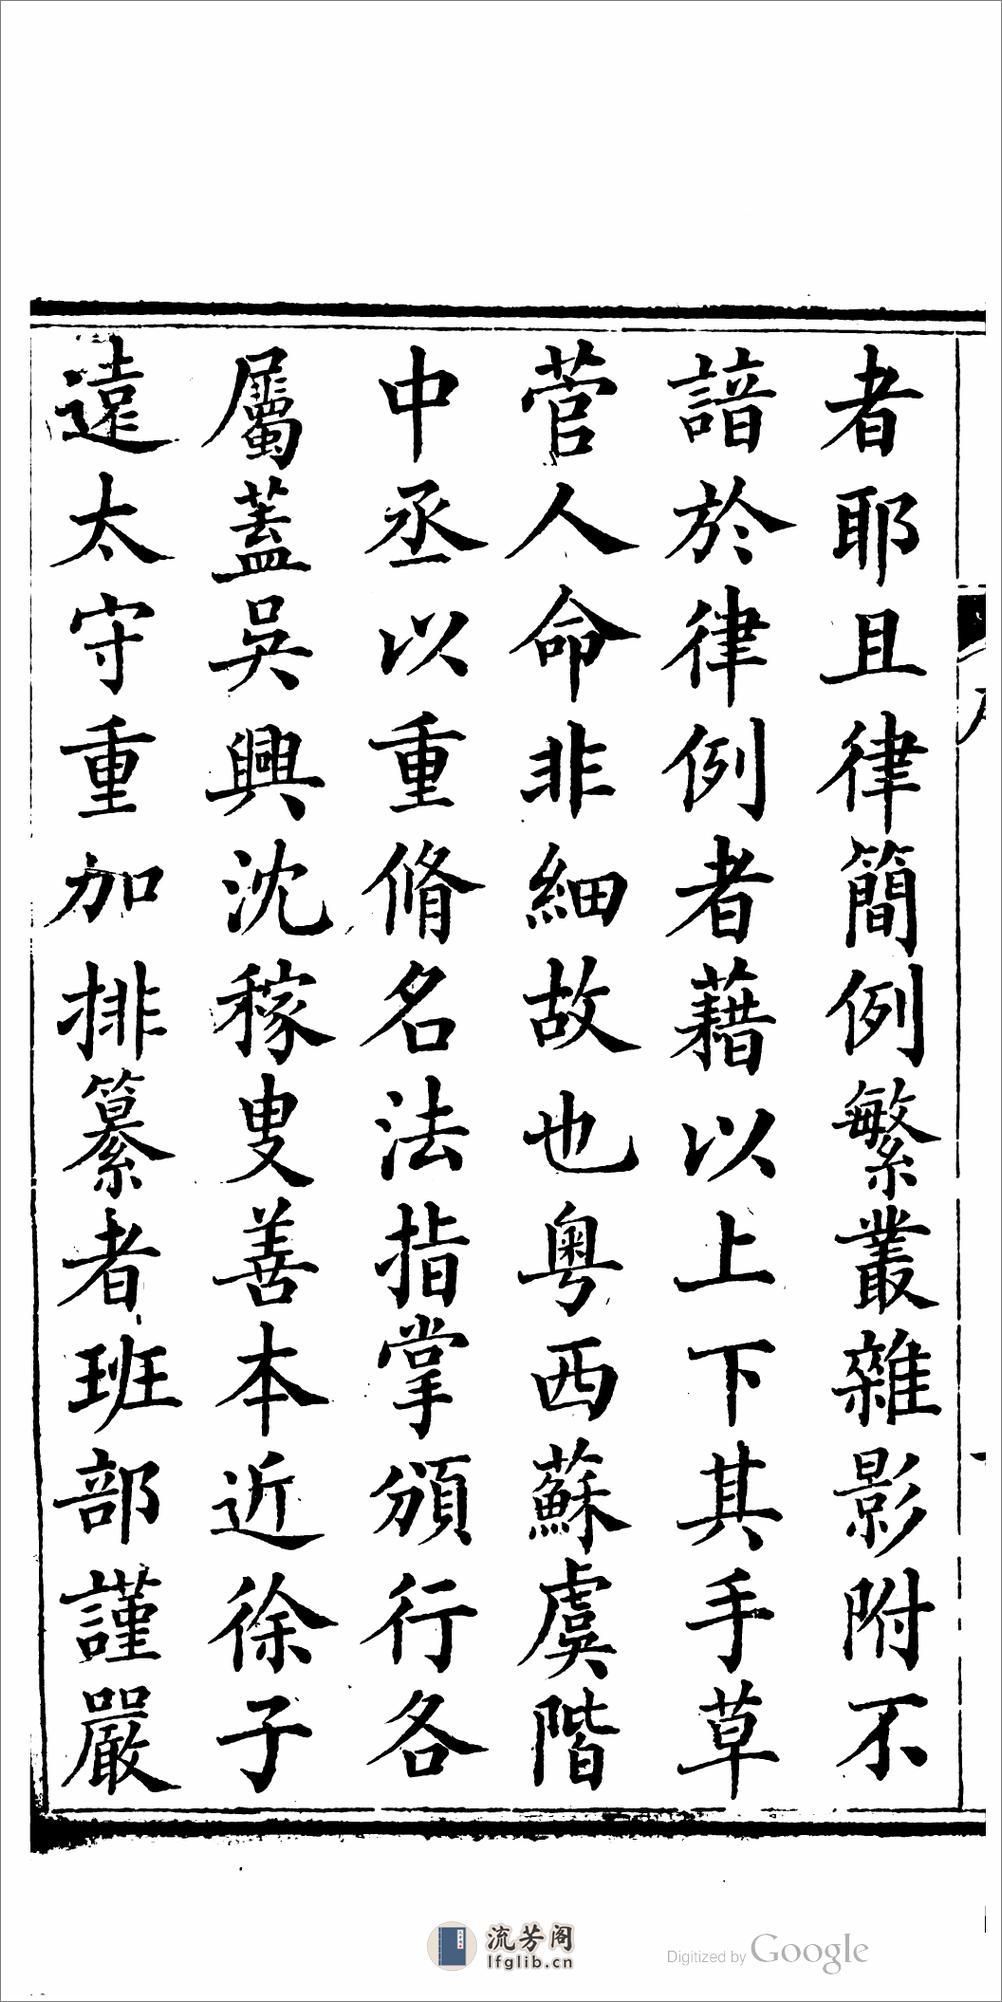 者耶且律簡例繁叢雜影附不
諳於律例者藉以上下其手草
菅人命非細故也粵西蘇虞階
中丞以重脩名法指掌頒行各
屬蓋吳興沈稼叟善本近徐子
遠太守重加排纂者班部謹嚴
流芳阁
lfglib.cn
Digitized by Google